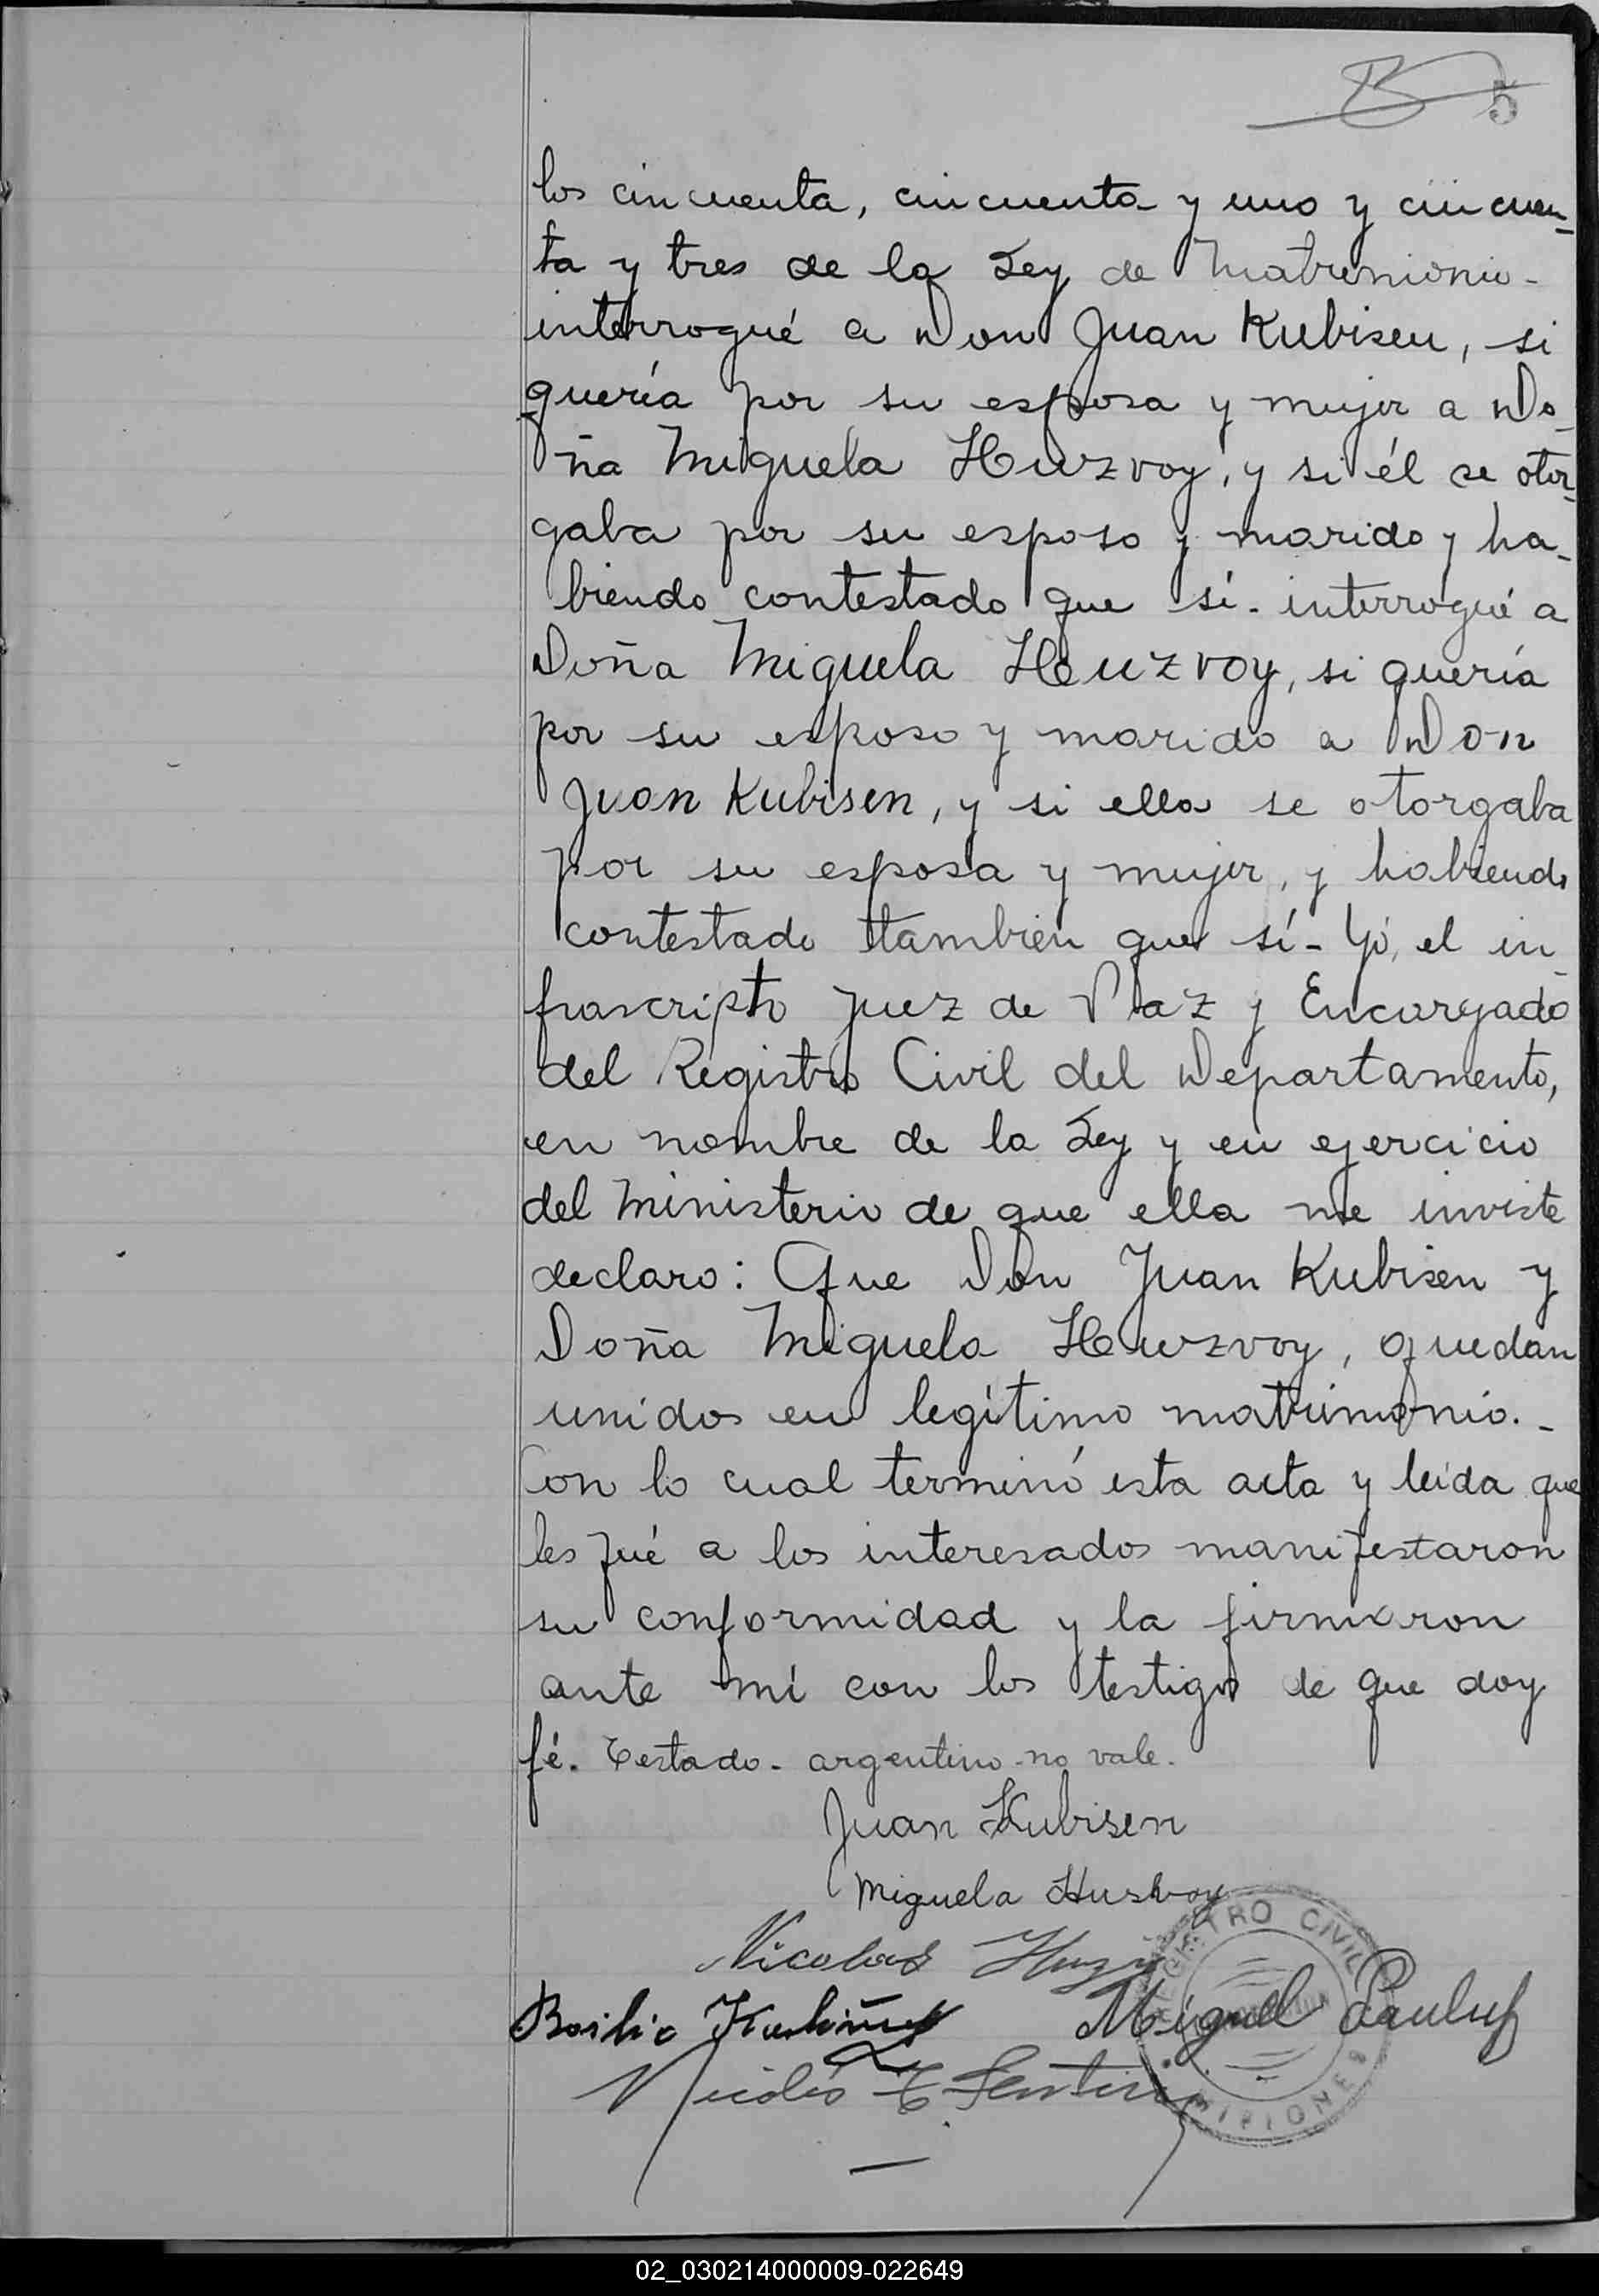 5
los cincuenta, cincuenta y uno y cincuen-
ta y tres de la Ley de Matrimonio-
interrogué a Don Juan Kubisen, si
quería por su esposa y mujer a Do-
ña Miguela Huzvoy, y si él se otor-
gaba por su esposo y marido y ha-
biendo contestado que sí- interrogué a
Doña Miguela Huzvoy, si quería
por su esposo y marido a Don
Juan Kubisen, y si ella se otorgaba
por su esposa y mujer, y habiendo
contestado tambien que sí- Yó, el in-
frascripto Juez de Paz y Encargado
del Registro Civil del Departamento,
en nombre de la Ley y en ejercicio
del Ministerio de que ella me inviste
declaro: Que Don Juan Kubisen y
Doña Miguela Huzvoy, quedan
unidos en legítimo matrimonio.-
Con lo cual terminó esta acta y leida que
les fué a los interesados manifestaron
su conformidad y la firmaron
ante mí con los testigos de que doy
fé. Testado- argentino- no vale.
Juan Kubisen
Miguela Husvoy
Nicolas
Basilio
Miguel
REGISTRO CIVIL
MISIONES
02_030214000009-022649